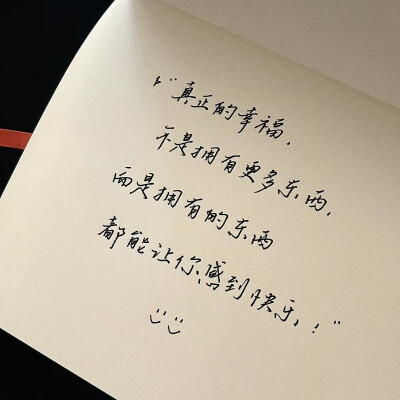 “真正的幸福,
不是拥有更多东西,
而是拥有的东西
都能让你感到快乐.!”